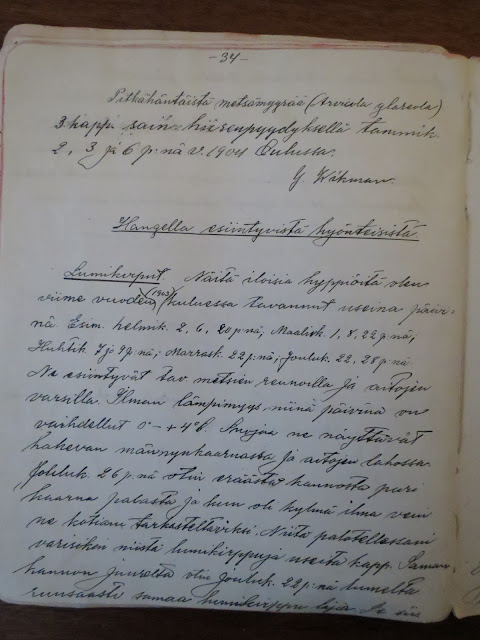 -34-
Pitkähäntäistä metsämyyrää (Arvicola glareola)
3 kappi sain hiirenpyydyksellä tammik.
2, 3 ja 6 p:nä v. 1904 Oulussa.
Y. Wikman.
Hangella esiintyvistä hyönteisistä
Lumikirput. Näitä iloisia hyppiöitä olen
viime vuoden (1903) kuluessa tavannut useina päivi-
nä Esim. helmik. 2, 6, 20 p:nä; Maalisk. 1, 8, 22 p:nä;
Huhtik. 7 ja 9 p:nä; Marrask. 22 p:nä; Jouluk. 22, 28 p:nä
Ne esiintyvät tav. metsien reunoilla ja aitojen
varsilla. Ilman lämpimyys niinä päivinä on
vaihdellut 0°- +4°C. Suojaa ne näyttävät
hakevan männynkaarnasta ja aitojen lahossa.
Jouluk. 26 p.nä otin eräästä kannosta pari
kaarna palasta ja kun oli kylmä ilma vein
ne kotiani tarkasteltaviksi. Niitä palotellessani
varisikin niistä lumikirppuja useita kapp. Saman
kannon juurelta otin Jouluk. 22 p:nä lumelta
runsaasti samaa lumikirppu lajia